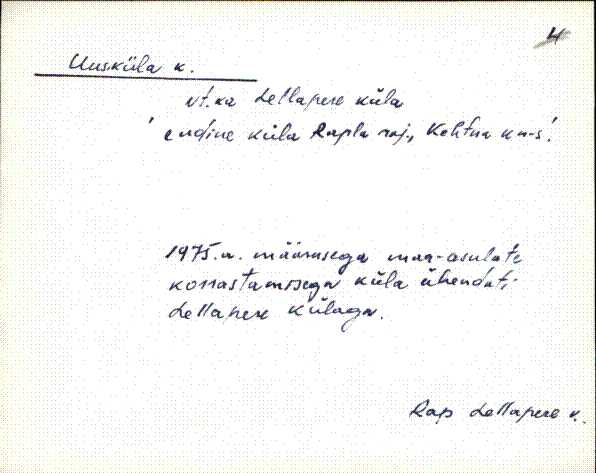 4
Uusküla k.
vt. ka Lellapere küla
'endine küla Rapla raj., Kehtna kn-s.'
1975.a. määrusega maa-asulate
korrastamisega küla ühendati
Lellapere külaga.
Rap Lellapere k.